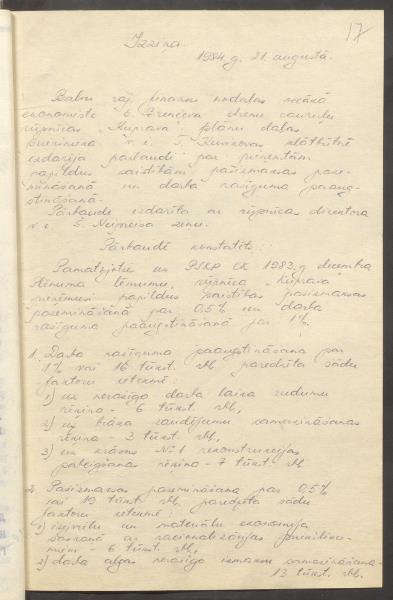 17
Izziņa.
1984. g. 21. augustā.
Balvu raj. finansu nodaļas vecākā
ekonomiste drenu cauruļu
rūpnīcas "Kuprava" plānu daļas
v. i. klātbūtnē
izdarīja pārbaudi par pieņemtām
papildus saistībām pašizmaksas paze-
mināšanā un darba ražīguma paaug-
stināšanā.
Pārbaude izdarīta ar rūpnīcas direktora
v. i. ziņu.
Pārbaudē konstatēts:
Pamatojoties uz PSKP CK 1983. g. decembra
Plēnuma lēmumu, rūpnīca "Kuprava"
pieņēmusi papildus saistības pašizmaksas
pazemināšanā par 0,5% un darba
ražīguma paaugstināšanā par 1%.
1. Darba ražīguma paaugstināšana par
1% vai 16 tūkst. rbļ. paredzēta šādu
faktoru ietekmē:
1) uz neražīgo darba laika zudumu
rēķina - 6 tūkst. rbļ,
2) uz brāķa zaudējumu samazināšanas
rēķina - 3 tūkst. rbļ,
3) uz krāsns №1 rekonstrukcijas
pabeigšanas rēķina - 7 tūkst. rbļ
2. Pašizmaksas pazemināšana par 0,5%
vai 19 tūkst. rbļ. paredzēta šādu
faktoru ietekmē:
1) izejvielu un materiālu ekonomija
saskaņā ar racionalizācijas priekšliku-
miem - 6 tūkst. rbļ,
2) darba algas neražīgo izmaksu samazināšana-
13 tūkst. rbļ.